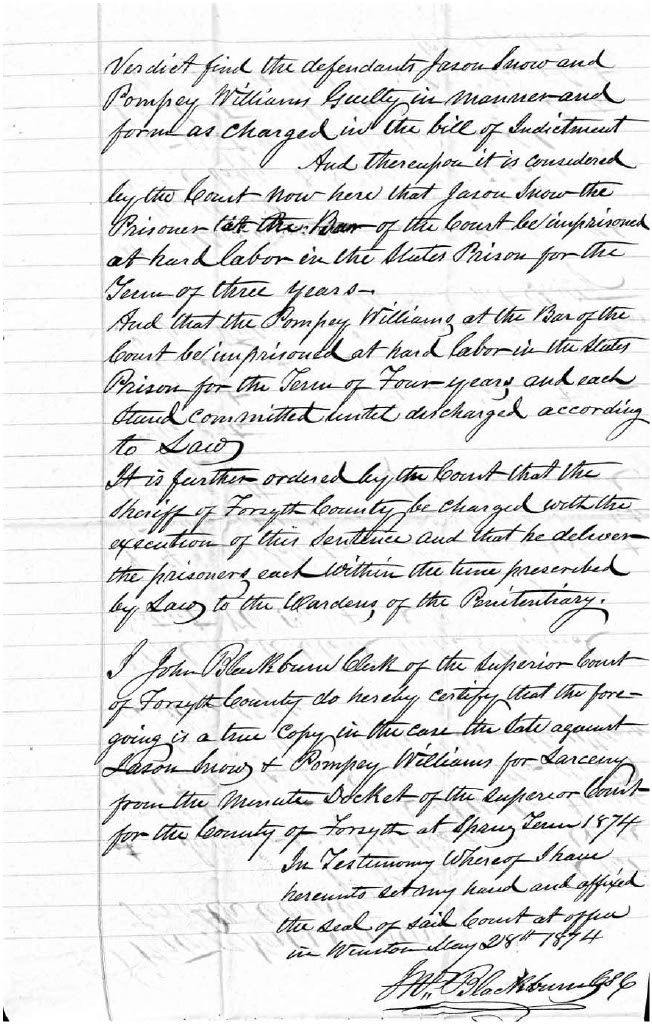 Verdict find the defendants Jason Snow and
Pompey Williams Guilty in manner and
form as charged in the bill of Indictment
And thereupon it is considered
by the Court now here that Jason Snow the
Prisoner at the Bar of the Court be imprisoned
at hard labor in the States Prison for the
Term of three years—
And that the Pompey Williams, at the Bar of the
Court be imprisoned at hard labor in the States
Prison for the Term of Four years, and each
stand committed until discharged according
to Law
It is further ordered by the Court that the
Sheriff of Forsyth County be charged with the
execution of this sentence and that he deliver
the prisoners, each within the time prescribed
by Law to the Wardens, of the Penitentiary.
I John Blackburn Clerk of the Superior Court
of Forsyth County do hereby certify that the fore-
going is a true Copy in the case the State against
Jason Snow & Pompey Williams for Larceny
from the Minute Docket of the Superior Court
for the County of Forsyth at Spring Term 1874
In Testimony Whereof I have
hereunto set my hand and affixed
the seal of said Court at office
in Winston May 28th 1874
Jno. Blackburn CSC